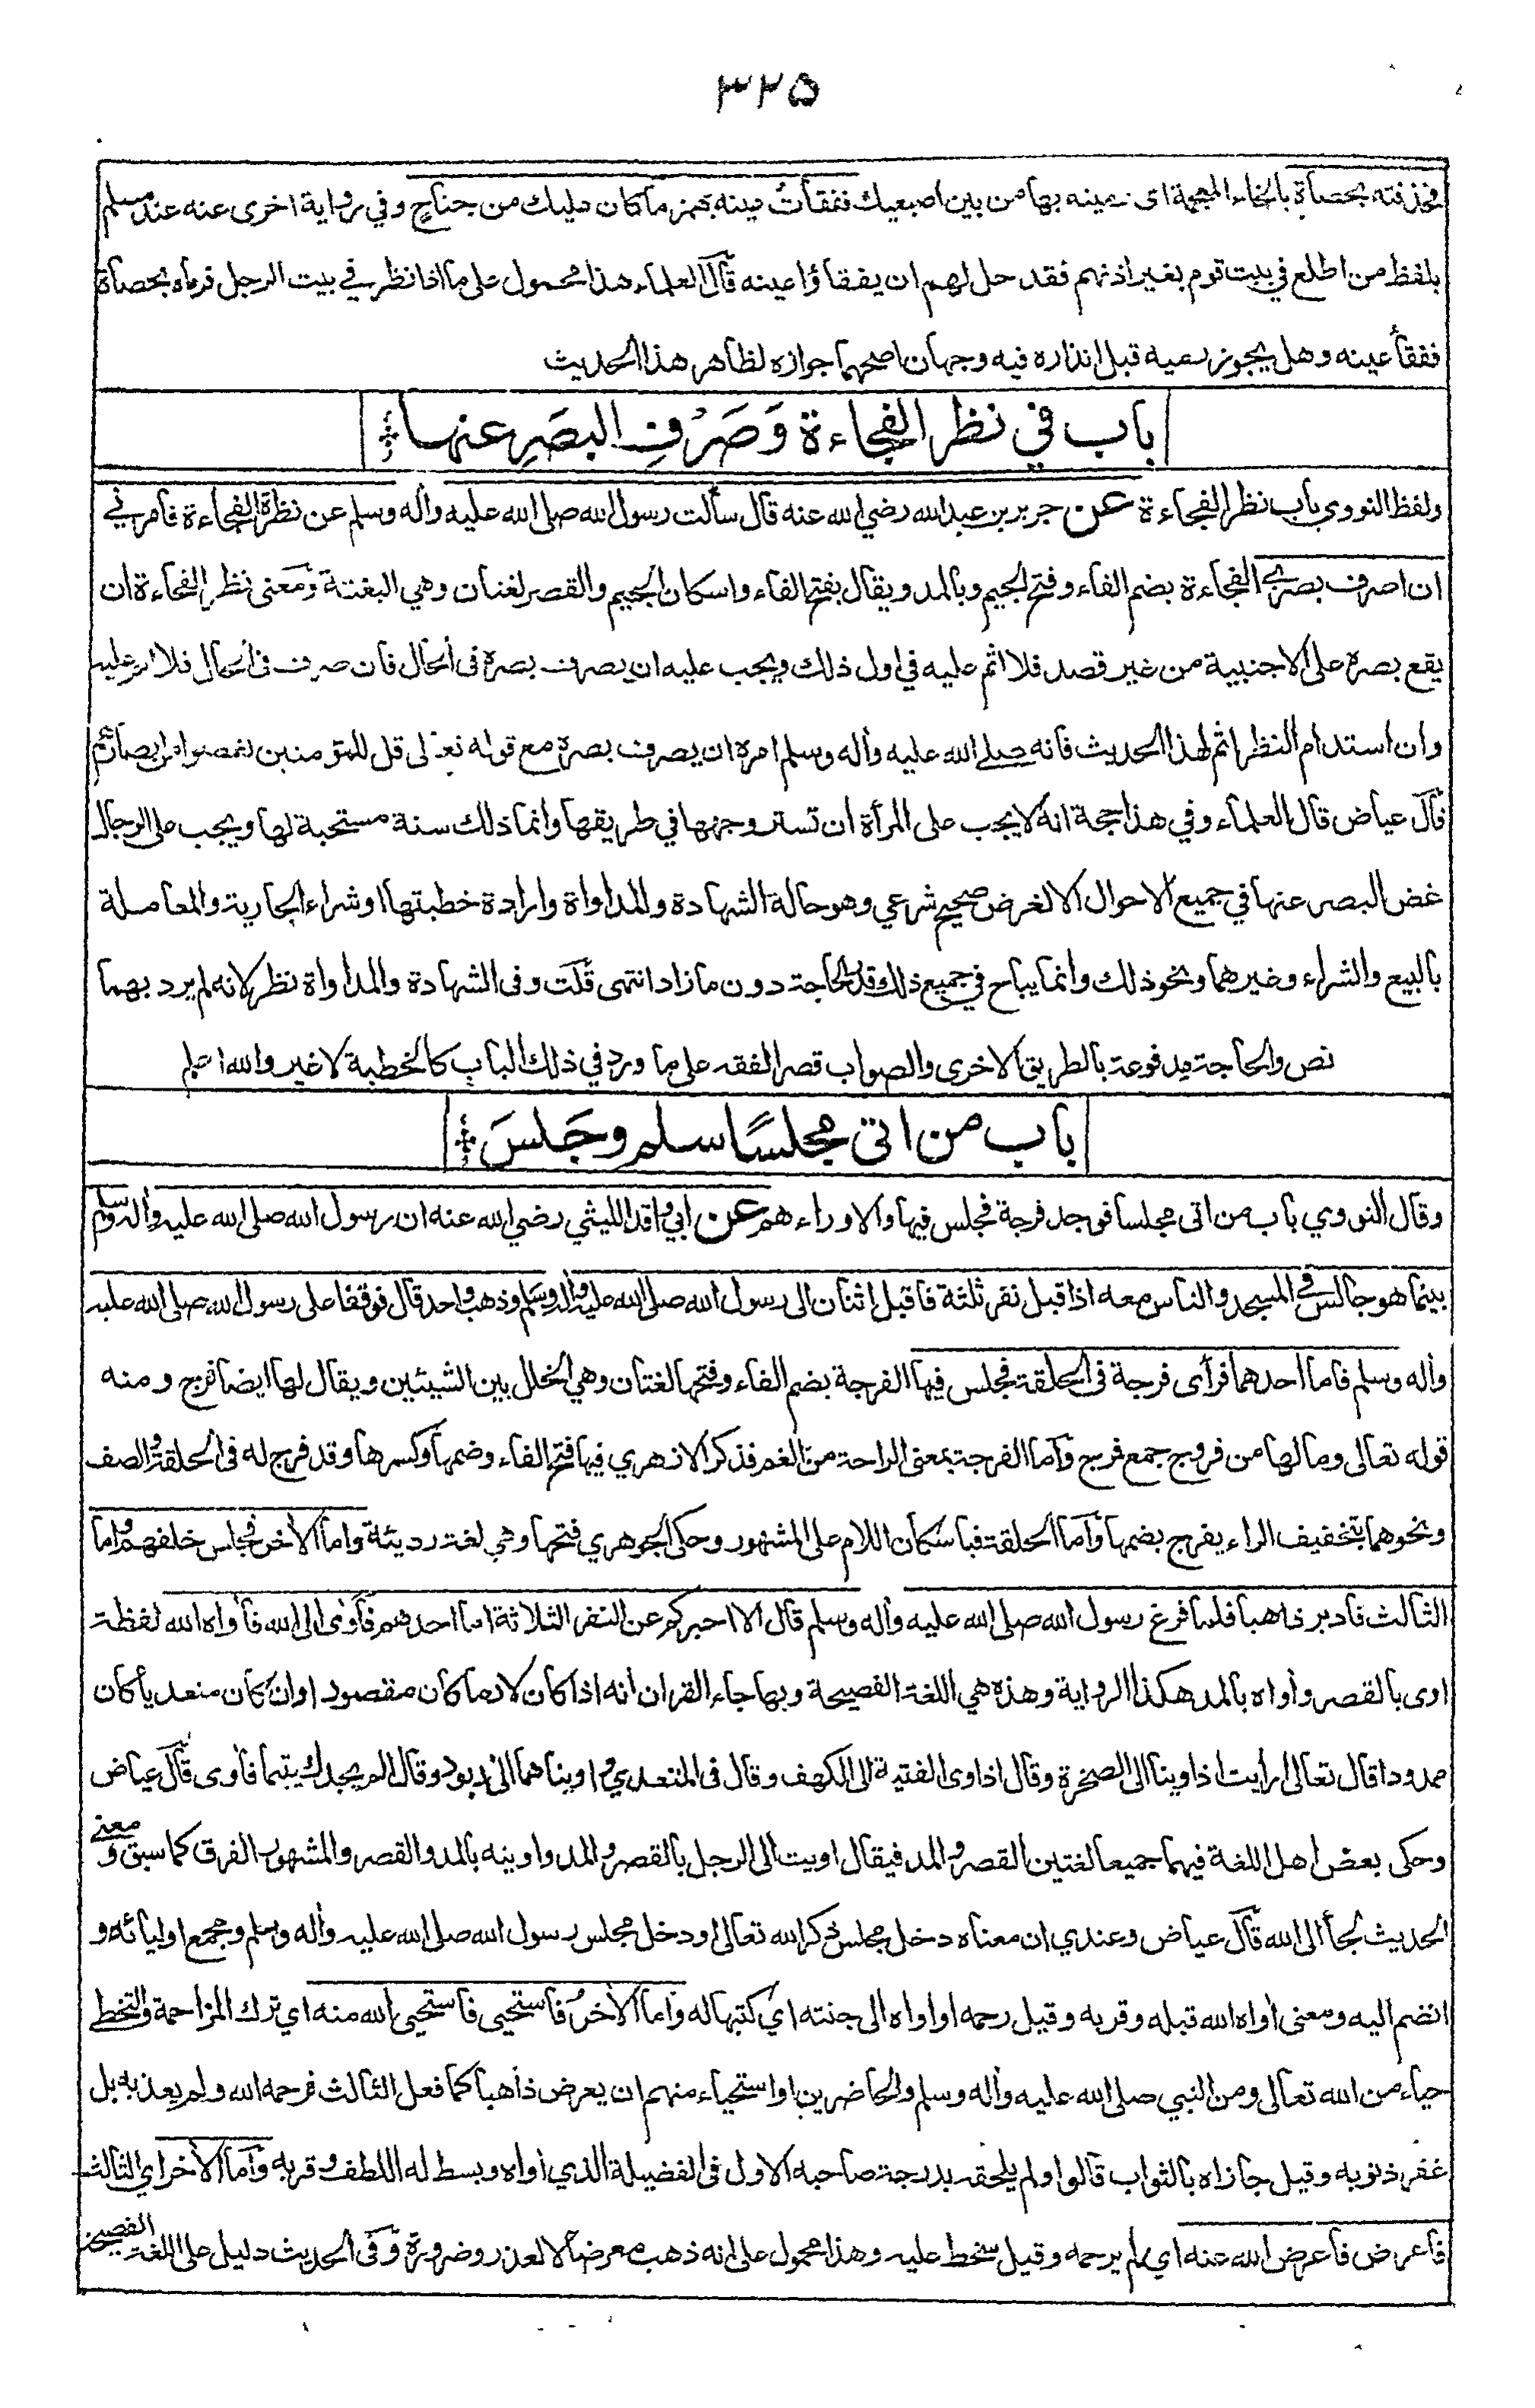 ٣٢٥
فخذفته بحصاة بالخاء المعجمة اى رميته بها من بين اصبعيك ففقأت عينه بهمز ما كان عليك من جناح وفي رواية اخرى عنه عند مسلم
بلفظ من اطلع في بيت قوم بغير اذنهم فقد حل لهم ان يفقاؤا عينه قال العلماء هذا محمول على ما اذا نظر في بيت الرجل فرماه بحصاة
ففقأ عينه وهل يجوز رميه قبل انذاره فيه وجهان اصحهما جوازه لظاهر هذا الحديث
باب في نظر الفجاءة وَصَرْفِ البصَرِ عنها
ولفظ النووي باب نظر الفجاءة عن جرير بن عبد الله رضي الله عنه قال سألت رسول الله صلى الله عليه وأله وسلم عن نظرة الفجاءة فأمرني
ان اصرف بصري الفجاءة بضم الفاء وفتح الجيم وبالمد ويقال بفتح الفاء واسكان الجيم والقصر لغتان وهي البغتة ومعنى نظر الفجاءة ان
يقع بصره على الاجنبية من غير قصد فلا اثم عليه في اول ذلك ويجب عليه ان يصرف بصره فى الحال فان صرف فى الحال فلا اثم عليه
وان استدام النظر اثم لهذا الحديث فانه صلى الله عليه وأله وسلم امره ان يصرف بصره مع قوله تعالى قل للمؤمنين يغضوا من ابصارهم
قال عياض قال العلماء وفي هذا حجة انه لا يجب على المرأة ان تستر وجهها في طريقها وانما ذلك سنة مستحبة لها ويجب على الرجال
غض البصر عنها في جميع الاحوال الا لغرض صحيح شرعي وهو حالة الشهادة والمداواة وارادة خطبتها او شراء الجارية والمعاملة
بالبيع والشراء وغيرهما ونحو ذلك وانما يباح في جميع ذلك قدر الحاجة دون ما زاد انتهى قلت وفى الشهادة والمداواة نظر لانه لم يرد بهما
نص والحاجة مدفوعة بالطريق الاخرى والصواب قصر الفقه على ما ورد في ذلك الباب كالخطبة لا غير والله اعلم
باب من اتى مجلسًا سلم وجَلسَ
وقال النووي باب من اتى مجلسا فوجد فرجة فجلس فيها والا وراءهم عن ابي واقد الليثي رضي الله عنه ان رسول الله صلى الله عليه وأله وسلم
بينما هو جالس في المسجد والناس معه اذ اقبل نفر ثلثة فاقبل اثنان الى رسول الله صلى الله عليه وأله وسلم وذهب واحد قال فوقفا على رسول الله صلى الله عليه
وأله وسلم فاما احدهما فرأى فرجة فى الحلقة فجلس فيها الفرجة بضم الفاء وفتحها لغتان وهي الخلل بين الشيئين ويقال لها ايضا فرج ومنه
قوله تعالى وما لها من فروج جمع فرج وأما الفرجة بمعنى الراحة من الغم فذكر الازهري فيها فتح الفاء وضمها وكسرها وقد فرج له فى الحلقة والصف
ونحوهما بتخفيف الراء يفرج بضمها وأما الحلقة فباسكان اللام على المشهور وحكى الجوهري فتحها وهي لغة رديئة واما الأخر فجلس خلفهم واما
الثالث فادبر ذاهبا فلما فرغ رسول الله صلى الله عليه وأله وسلم قال الا اخبركم عن النفر الثلاثة اما احدهم فأوى الى الله فأواه الله لفظة
اوى بالقصر وأواه بالمد هكذا الرواية وهذه هي اللغة الفصيحة وبها جاء القران انه اذا كان لازما كان مقصورا وان كان متعديا كان
ممدودا قال تعالى ارأيت اذ اوينا الى الصخرة وقال اذ اوى الفتية الى الكهف وقال فى المتعدي واويناهما الى ربوة وقال الم يجدك يتيما فأوى قال عياض
وحكى بعض اهل اللغة فيهما جميعا لغتين القصر والمد فيقال اويت الى الرجل بالقصر والمد واويته بالمد والقصر والمشهور الفرق كما سبق ومعنى
الحديث لجأ الى الله قال عياض وعندي ان معناه دخل مجلس ذكر الله تعالى او دخل مجلس رسول الله صلى الله عليه وأله وسلم ومجمع اوليائه و
انضم اليه ومعنى أواه الله قبله وقربه وقيل رحمه او اواه الى جنته اي كتبها له وأما الأخر فاستحيى فاستحيى الله منه اي ترك المزاحمة والتخطي
حياء من الله تعالى ومن النبي صلى الله عليه وأله وسلم والحاضرين او استحياء منهم ان يعرض ذاهبا كما فعل الثالث فرحمه الله ولم يعذبه بل
غفر ذنوبه وقيل جازاه بالثواب قالوا ولم يلحقه بدرجة صاحبه الاول فى الفضيلة الذي أواه وبسط له اللطف وقربه وأما الأخر اي الثالث
فأعرض فأعرض الله عنه اي لم يرحمه وقيل سخط عليه وهذا محمول على انه ذهب معرضا لا لعذر وضرورة وفى الحديث دليل على اللغة الفصيحة